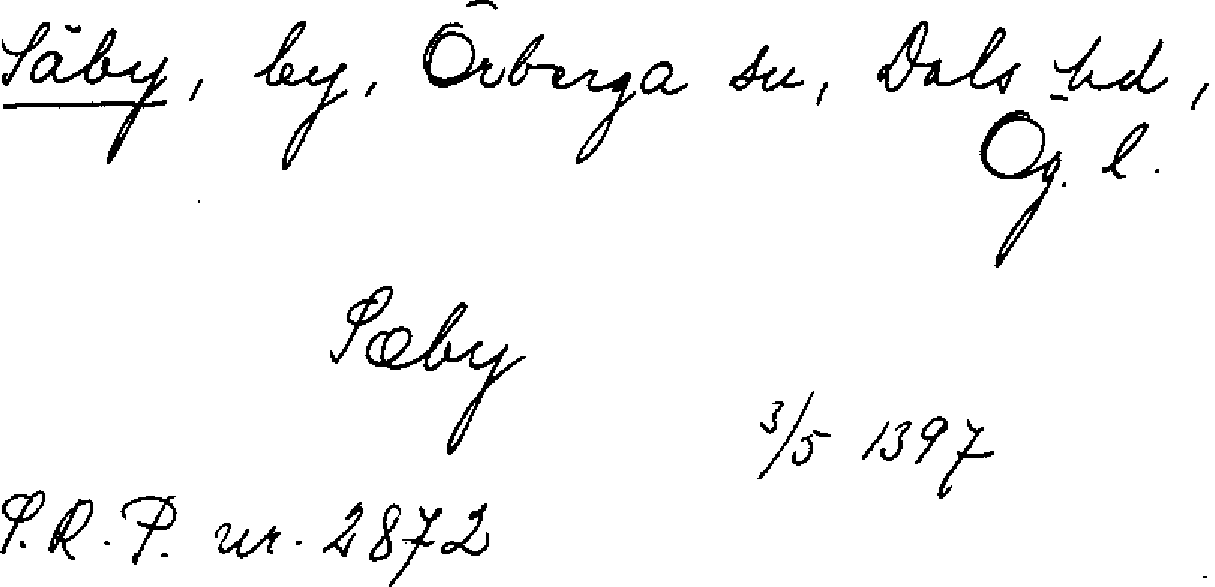 Säby, by, Örberga sn, Dals hd,
Ög. l.
Sæby
3/5 1397
S.R.P. nr. 2872